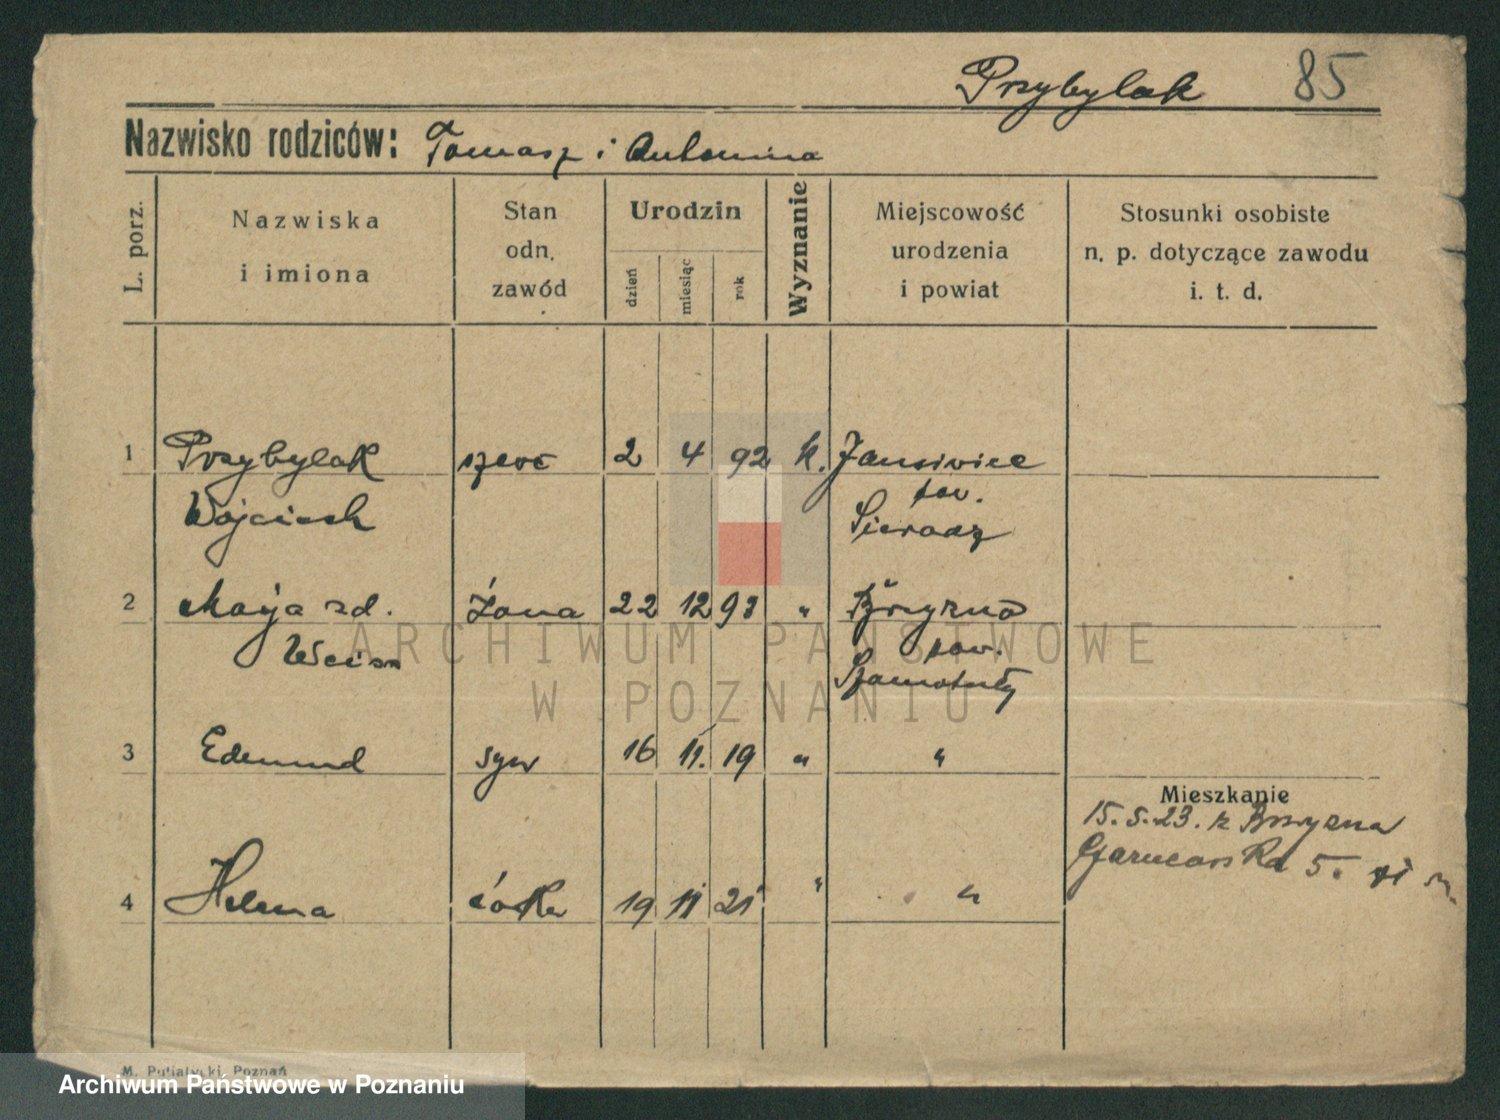 Przybylak 85
Nazwisko rodziców: Tomasz i Antonina
L. porz.
Nazwiska
i imiona
Stan
odn.
zawód
Urodzin
dzień
miesiąc
rok
Wyznanie
Miejscowość
urodzenia
i powiat
Stosunki osobiste
n. p. dotyczące zawodu
i. t. d.
1 Przybylak szewc 2 4 92 k. Janowice
Wojciech pow.
Sieradz
2 Marja zd. żona 22 12 93 " Brzezno
Weiss pow.
Szamotuły
3 Edmund syn 16 11. 19 " "
Mieszkanie
15.5.23. z Brzezna
Garncarska 5.
4 Helena córka 19 11 21 " "
ARCHIWUM PAŃSTWOWE
W POZNANIU
M. Putiatycki, Poznań
Archiwum Państwowe w Poznaniu